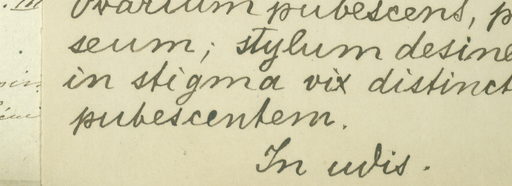 Ovarium pubescens, p
seum; stylum desine
in stigma vix distinct
pubescentem.
In udis.